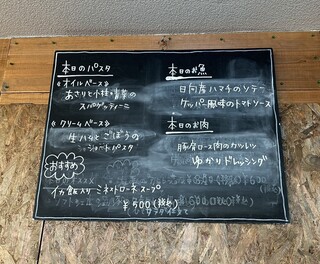 本日のパスタ
《オイルベース》
あさりと小松菜の
スパゲッティーニ
《クリームベース》
生ハムとごぼうの
ショートパスタ
おすすめ
イカ飯入りミネストローネスープ
¥500(税込)
本日のお魚
日向産ハマチのソテー
ケッパー風味のトマトソース
本日のお肉
豚肩ロース肉のカツレツ
ゆかりドレッシング